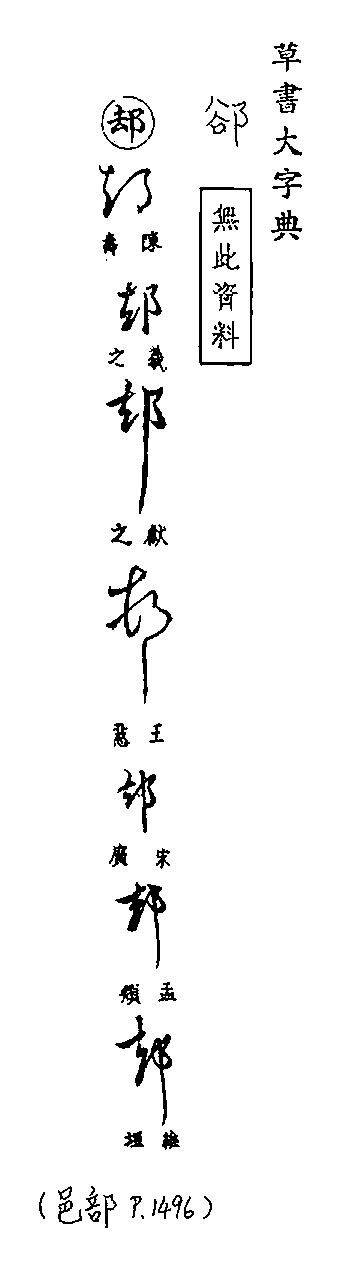 草書大字典
郤
無此資料
𨚫
𨚫
陳壽
𨚫
羲之
𨚫
獻之
𨚫
王
𨚫
宋廣
𨚫
孟頫
𨚫
維垣
(邑部 P.1496)